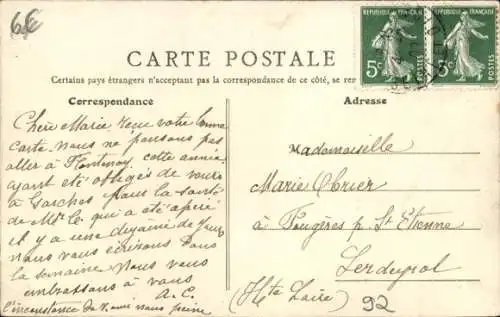 6€
RÉPUBLIQUE FRANÇAISE
5c
POSTES
RÉPUBLIQUE FRANÇAISE
5c
POSTES
CARTE POSTALE
Certains pays étrangers n'acceptant pas la correspondance de ce côté, se
Correspondance
Adresse
Chère Marie reçu votre bonne
carte nous ne pensons pas
aller à Fontenay cette année
ayant été obligés de venir
à Garches pour la santé
de Mr. qui a été
il y a une dizaine de jours
nous vous écrirons dans
la semaine Nous vous
embrassons à vous
A. C.
l'inconstance nous peine
Mademoiselle
Marie
à Fougères p. St Etienne
(Hte Loire)
92